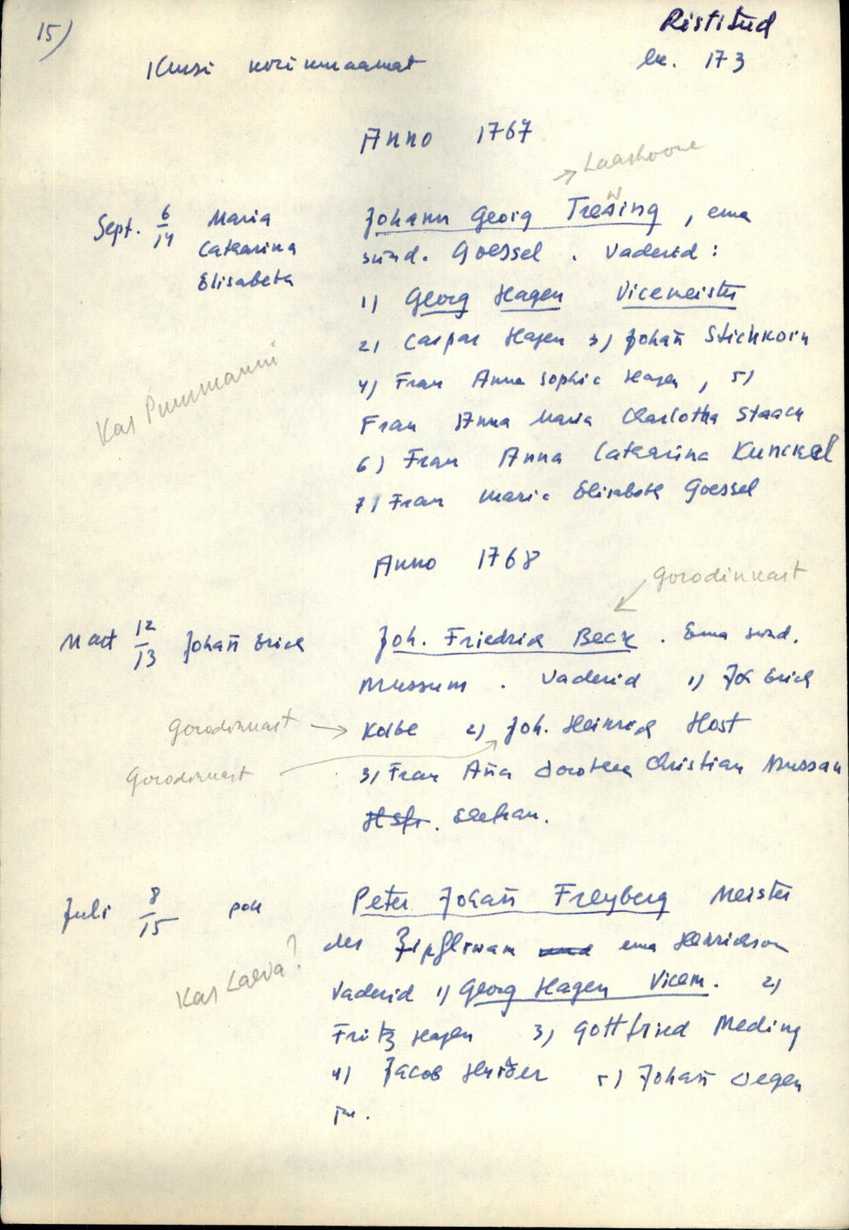 15)
Ristitud
Kursi kirikuraamat
lk. 173
Anno 1767
→ Laashoone
Sept. 6/14 Maria Catharina Elisabeth
Johann Georg Trewing, ema
sünd. Goessel. Vaderid:
1) Georg Hagen Vicemeister
2) Caspar Hagen 3) Johañ Stichkorn
Kas Purmanni
4) Frau Anna Sophie Hagen, 5)
Frau Anna Maria Charlotha Staach
6) Frau Anna Catharina Kunckel
7) Frau Maria Elisabeth Goessel
Anno 1768
Gorodinkast
Mart 12/13 Johañ Erich
Joh. Friedrich Beck. Ema sünd.
Mussum. Vaderid 1) Joh Erich
Gorodinkast → Kolbe 2) Joh. Heinrich Host
Gorodinkast
3) Frau Aña Dorothea Christian Mussau
Juli 8/15 poeg
Peter Johañ Freyberg Meister
der und ema Henrichson
Kas Laeva?
Vaderid 1) Georg Hagen Vicem. 2)
Fritz Hagen 3) Gottfried Meding
4) Jacob 5) Johañ Degen